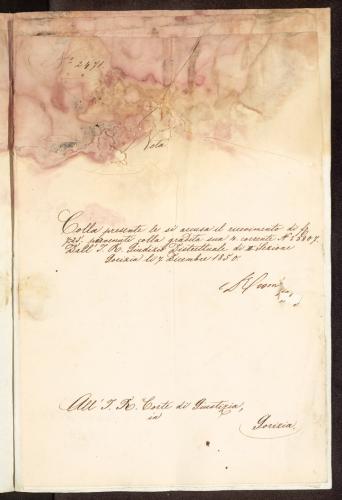 N° 2471
Nota
Colla presente le si accusa il ricevimento di f
725. pervenuti colla gradita sua 4. corrente N°
Dall' I. R. Giudizio Distrettuale di II Sezione
Gorizia li 7 Dicembre 1850.
All' I. R. Corte di Giustizia,
in
Gorizia